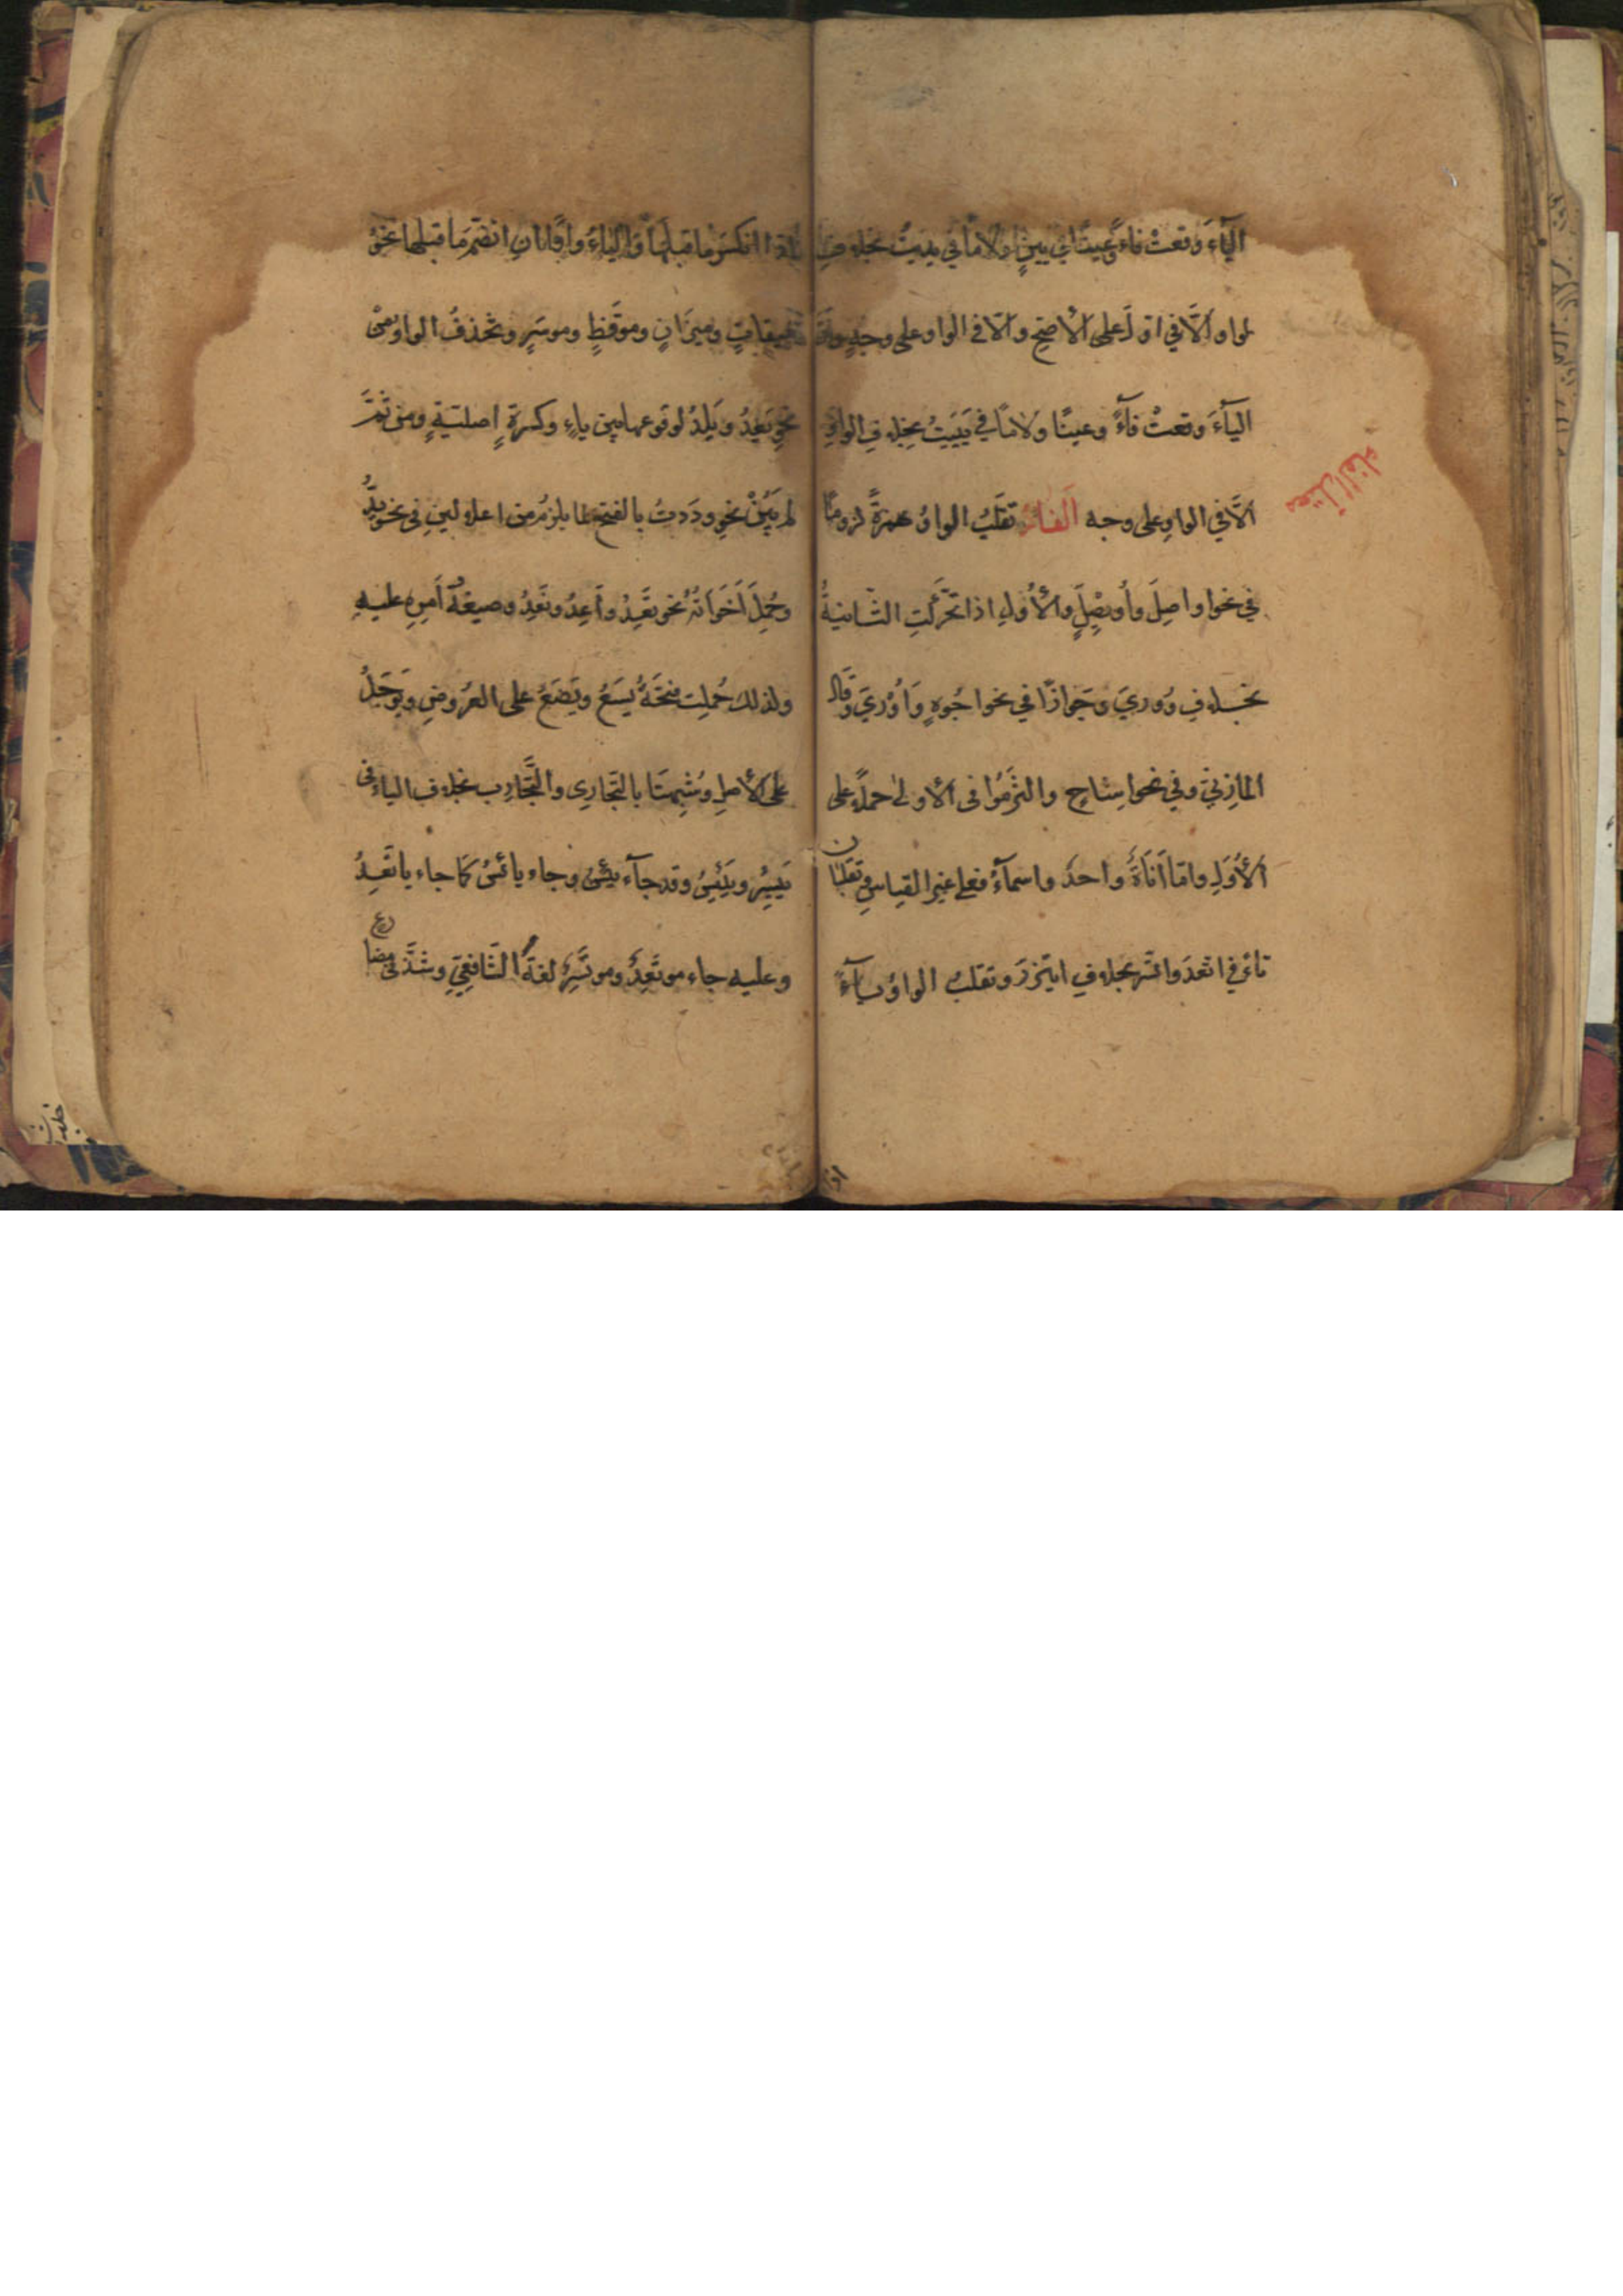 الياءَ وقعتْ فاءً وعينًا في يينٍ ولامًا في يديتُ بخلاف
لواو الّا في اوّلَ على الأصحِ والّا في الواو على وجهٍ وانّ
الياءَ وقعتْ فاءً وعينًا ولامًا في يَيَيتُ بخلاف الواوِ
الّا في الواوِ على وجه الفاءُ تقلبُ الواوُ همزةً لزومًا
في نحو اواصِلَ واُويصِلٍ والأُوَلِ اذا تحرّكتِ الثّانيةُ
بخلاف وُوريَ وجَوازًا في نحو اُجُوهٍ وَاُوْرِيَ وقال
المازِنيُّ وفي نحو اِشاحٍ والتزمُوا في الأولى حملًا على
الأُوَلِ وامّا اَناةٌ واحدٌ واسماءُ فعلى غيرِ القياسِ وتقلبان
تاءً في اتّعدَ واتّسر بخلاف ايتزرَ وتقلبُ الواوُ ياءً
معتل الفاء
اذا
اذا انكسرَ ما قبلها والياءُ واوًا ان انضمّ ما قبلها نحوُ
ميقاتٍ وميزَانٍ وموقظٍ وموسَرٍ وتحذفُ الواو من
نحو يَعِدُ ويَلِدُ لوقوعها بين ياءٍ وكسرةٍ اصليّةٍ ومن ثمّ
لم يُبْنَ نحو ودَدتُ بالفتح لما يلزمُ من اعلالينِ في نحو يدُّ
وحُمِلَ اَخَوَاتُهُ نحو تَعِدُ واَعِدُ ونَعِدُ وصيغةُ اَمرِهِ عليهِ
ولذلك حُملت فتحةُ يَسَعُ ويَضَعُ على العُرُوضِ ويَوجَلُ
على الأصلِ وشُبِّهتَا بالتّجارِى والتّجارِب بخلاف الياء في
يَيسِرُ ويَيْئِسُ وقد جاء يَئِسُ وجاء يائسُ كما جاء ياتَعِدُ
وعليه جاء موتَعِدٌ وموتَسِرٌ لغةُ الشّافعيِّ وشذّ في مضارع